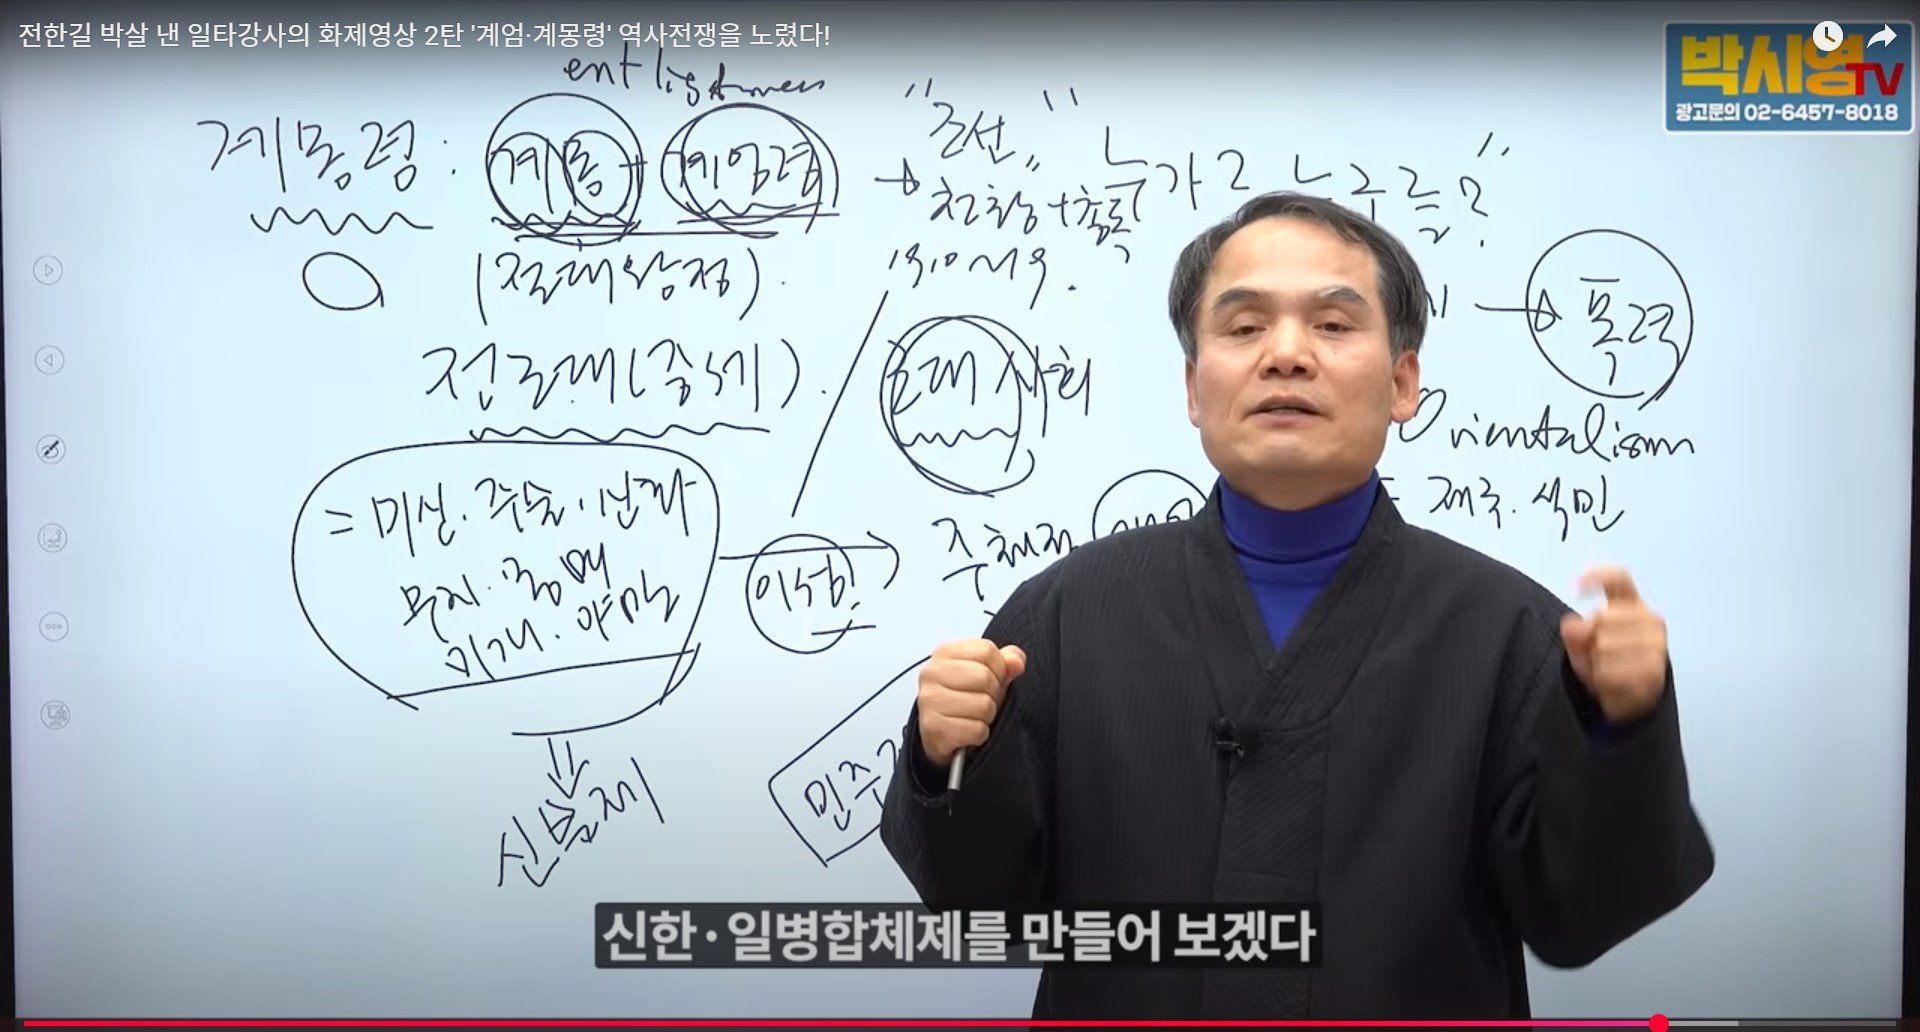 전한길 박살 낸 일타강사의 화제영상 2탄 '계엄·계몽령' 역사전쟁을 노렸다!
박시영TV
광고문의 02-6457-8018
계몽령 : 계몽 + 계엄령 →
"조선"
누가 누구를?"
(절대왕정)
전근대(중세)
근대사회
→ 폭력
Orientalism
= 미신. 주술.
무지. 몽매
미개. 야만
이성
주체적
제국. 식민
민주
신분제
신한·일병합체제를 만들어 보겠다